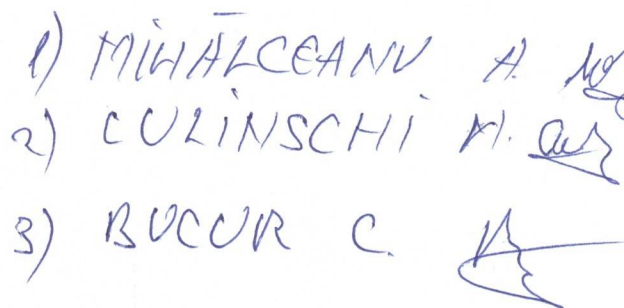 1) MIHĂLCEANU A.
2) CULINSCHI M.
3) BUCUR C.